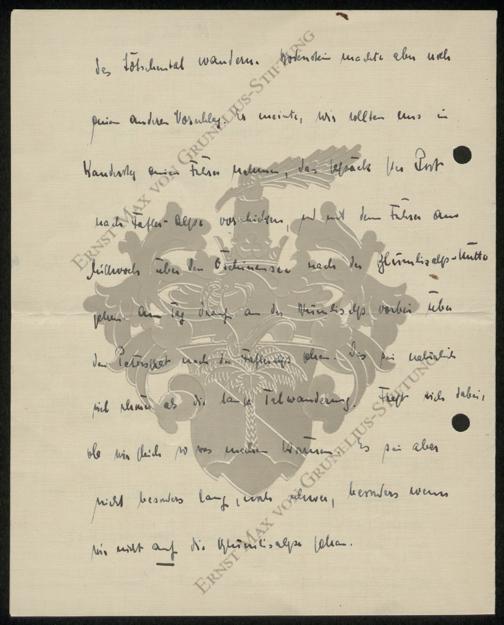 das Lötschental wandern. Bodenstein machte aber noch
einen anderen Vorschlag. Er meinte, wir sollten uns in
Kandersteg einen Führer nehmen, das Gepäck per Post
nach Fafler-Alpe vorschicken, und mit dem Führer am
Mittwoch über den Öschinensee nach der Blümlisalp-Hütte
gehen. Am Tag drauf an der Blümlisalp vorbei über
den Petersgrat nach der Fafleralp gehen. Das sei natürlich
viel schöner als die lange Talwanderung. Fragt sich dabei,
ob wir gleich so was machen können. Es sei aber
nicht besonders lang, noch schwer, besonders wenn
wir nicht auf die Blümlisalp gehen.
ERNST MAX VON GRUNELIUS-STIFTUNG
ERNST MAX VON GRUNELIUS-STIFTUNG